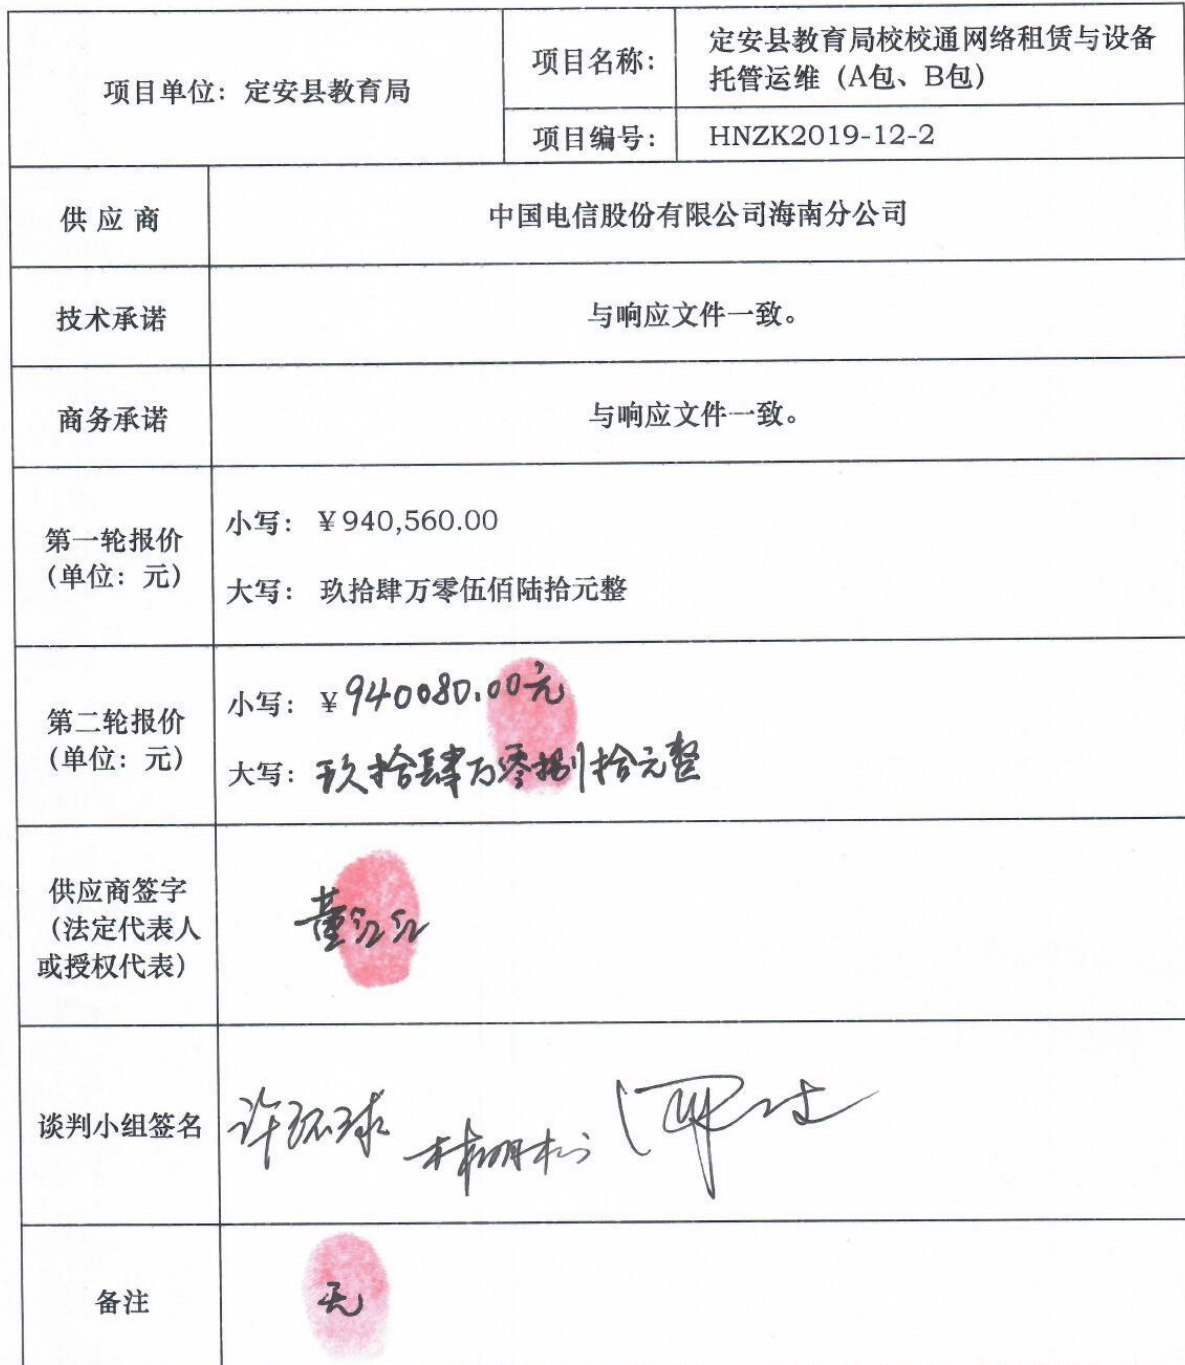 项目单位：定安县教育局
项目名称：
定安县教育局校校通网络租赁与设备
托管运维（A包、B包）
项目编号：
HNZK2019-12-2
供应商
中国电信股份有限公司海南分公司
技术承诺
与响应文件一致。
商务承诺
与响应文件一致。
第一轮报价
（单位：元）
小写：￥940,560.00
大写：玖拾肆万零伍佰陆拾元整
第二轮报价
（单位：元）
小写：￥940080.00元
大写：玖拾肆万零捌拾元整
供应商签字
（法定代表人
或授权代表）
董红红
谈判小组签名
许环球
备注
无